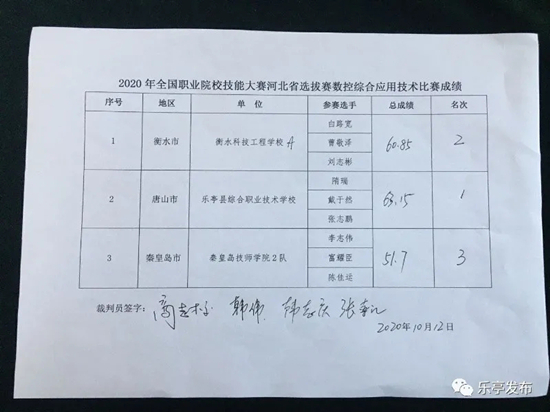 2020年全国职业院校技能大赛河北省选拔赛数控综合应用技术比赛成绩
序号 地区 单位 参赛选手 总成绩 名次
1 衡水市 衡水科技工程学校 A 白路宽 60.85 2
曹敬泽
刘志彬
2 唐山市 乐亭县综合职业技术学校 隋瑞 1
戴于然
张志鹏
3 秦皇岛市 秦皇岛技师学院2队 李志伟 51.7 3
富耀臣
陈佳运
裁判员签字： 韩伟
2020年10月12日
乐亭发布